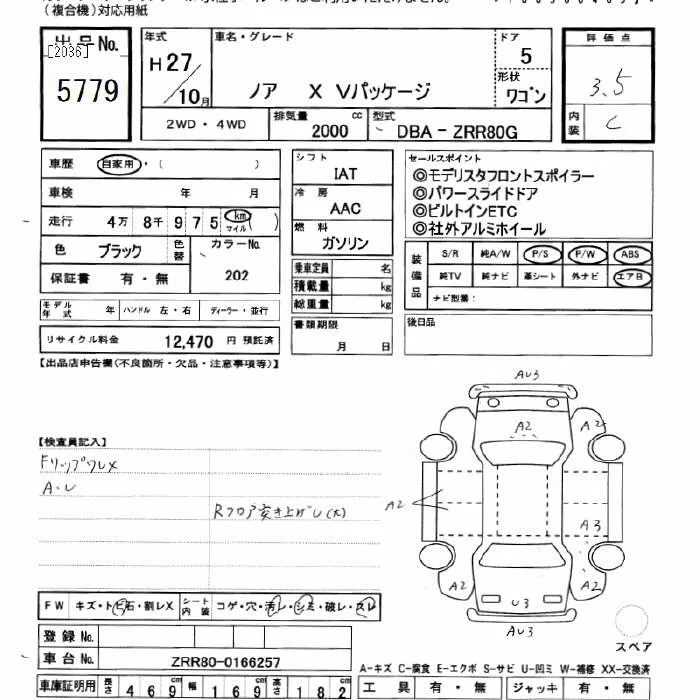 (複合機)対応用紙
出品No.
[2036]
5779
年式
H27/10月
車名・グレード
ノア X Vパッケージ
ドア
5
形状
ワゴン
評価点
3.5
内装
C
2WD・4WD
排気量
2000 cc
型式
DBA - ZRR80G
車歴 自家用・( )
車検 年 月
走行 4万 8千 9 7 5 km マイル ( )
色 ブラック 色替 カラーNo.
202
保証書 有・無
モデル年式 年 ハンドル 左・右 ディーラー・並行
リサイクル料金 12,470 円 預託済
シフト
IAT
冷房
AAC
燃料
ガソリン
乗車定員 名
積載量 kg
総重量 kg
書類期限
月 日
セールスポイント
◎モデリスタフロントスポイラー
◎パワースライドドア
◎ビルトインETC
◎社外アルミホイール
装備品
S/R 純A/W P/S P/W ABS
純TV 純ナビ 革シート 外ナビ エアB
ナビ型番:
後日品
【出品店申告欄(不良箇所・欠品・注意事項等)】
【検査員記入】
FリップワレX
A・U
Rフロア突き上げU(大)
AU3
A2
A2
A2
A3
A2
A2
U3
AU3
スペア
FW キズ・トビ石・割レX シート内装 コゲ・穴・汚レ・シミ・破レ・スレ
登録No.
車台No. ZRR80-0166257
車庫証明用 長さ 469cm 幅 169cm 高さ 182cm
A-キズ C-腐食 E-エクボ S-サビ U-凹ミ W-補修 XX-交換済
工具 有・無 ジャッキ 有・無